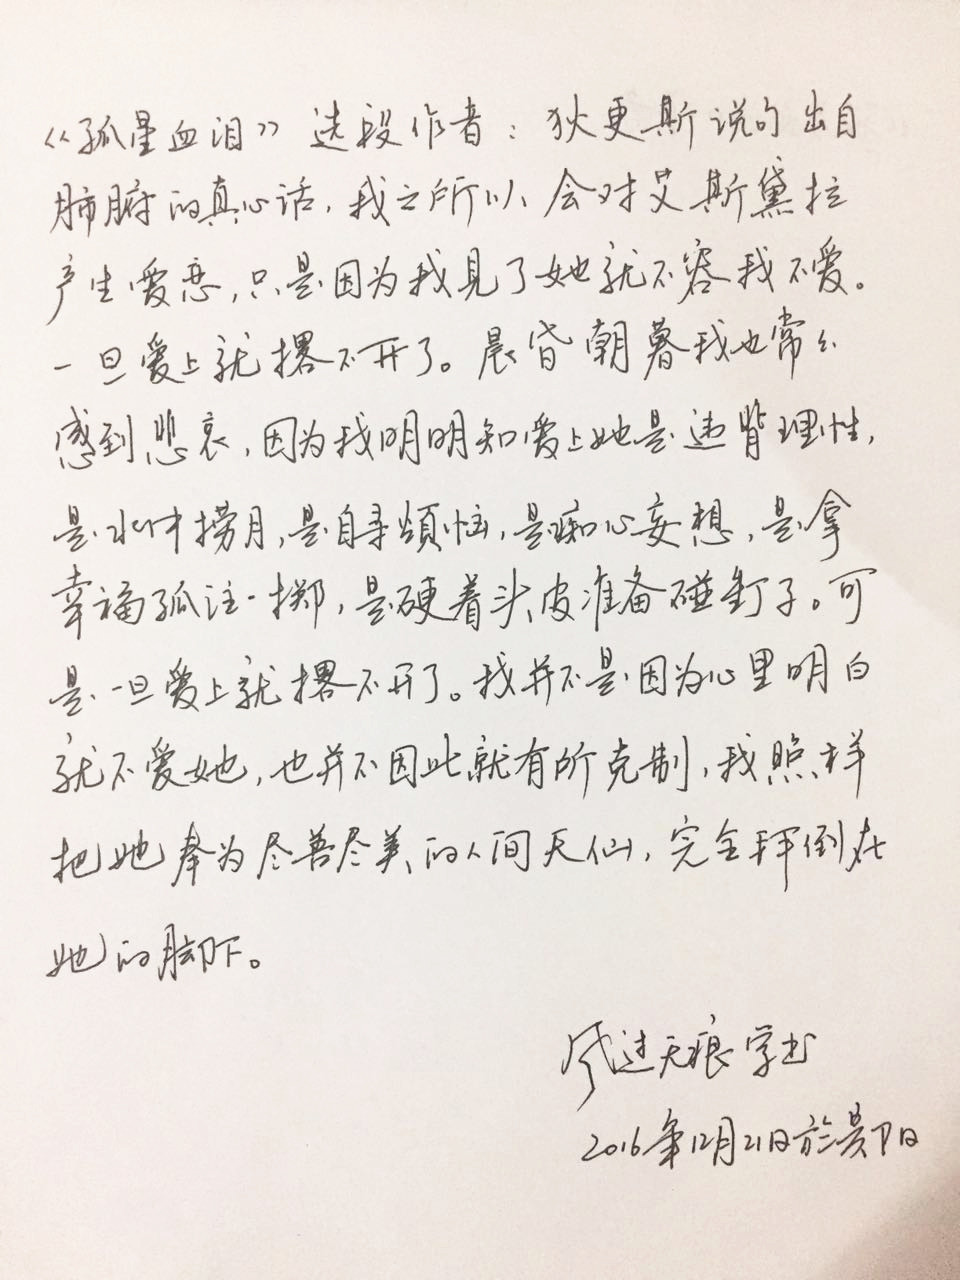 《孤星血泪》选段作者：狄更斯说句出自
肺腑的真心话，我之所以会对艾斯黛拉
产生爱恋，只是因为我见了她就不容我不爱。
一旦爱上就撂不开了。晨昏朝暮我也常々
感到悲哀，因为我明明知爱上她是违背理性，
是水中捞月，是自寻烦恼，是痴心妄想，是拿
幸福孤注一掷，是硬着头皮准备碰钉子。可
是一旦爱上就撂不开了。我并不是因为心里明白
就不爱她，也并不因此就有所克制，我照样
把她奉为尽善尽美的人间天仙，完全拜倒在
她的脚下。
风过无痕学书
2016年12月21日於贵阳